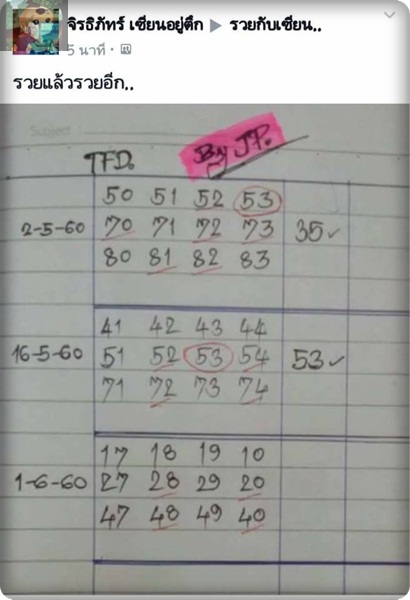 จิรธิภัทร์ เซียนอยู่ตึก ▶ รวยกับเซียน..
5 นาที ·
รวยแล้วรวยอีก..
Subject :
TFD. By JP.
50 51 52 53
2-5-60 70 71 72 73 35 ✓
80 81 82 83
41 42 43 44
16-5-60 51 52 53 54 53 ✓
71 72 73 74
17 18 19 10
1-6-60 27 28 29 20
47 48 49 40